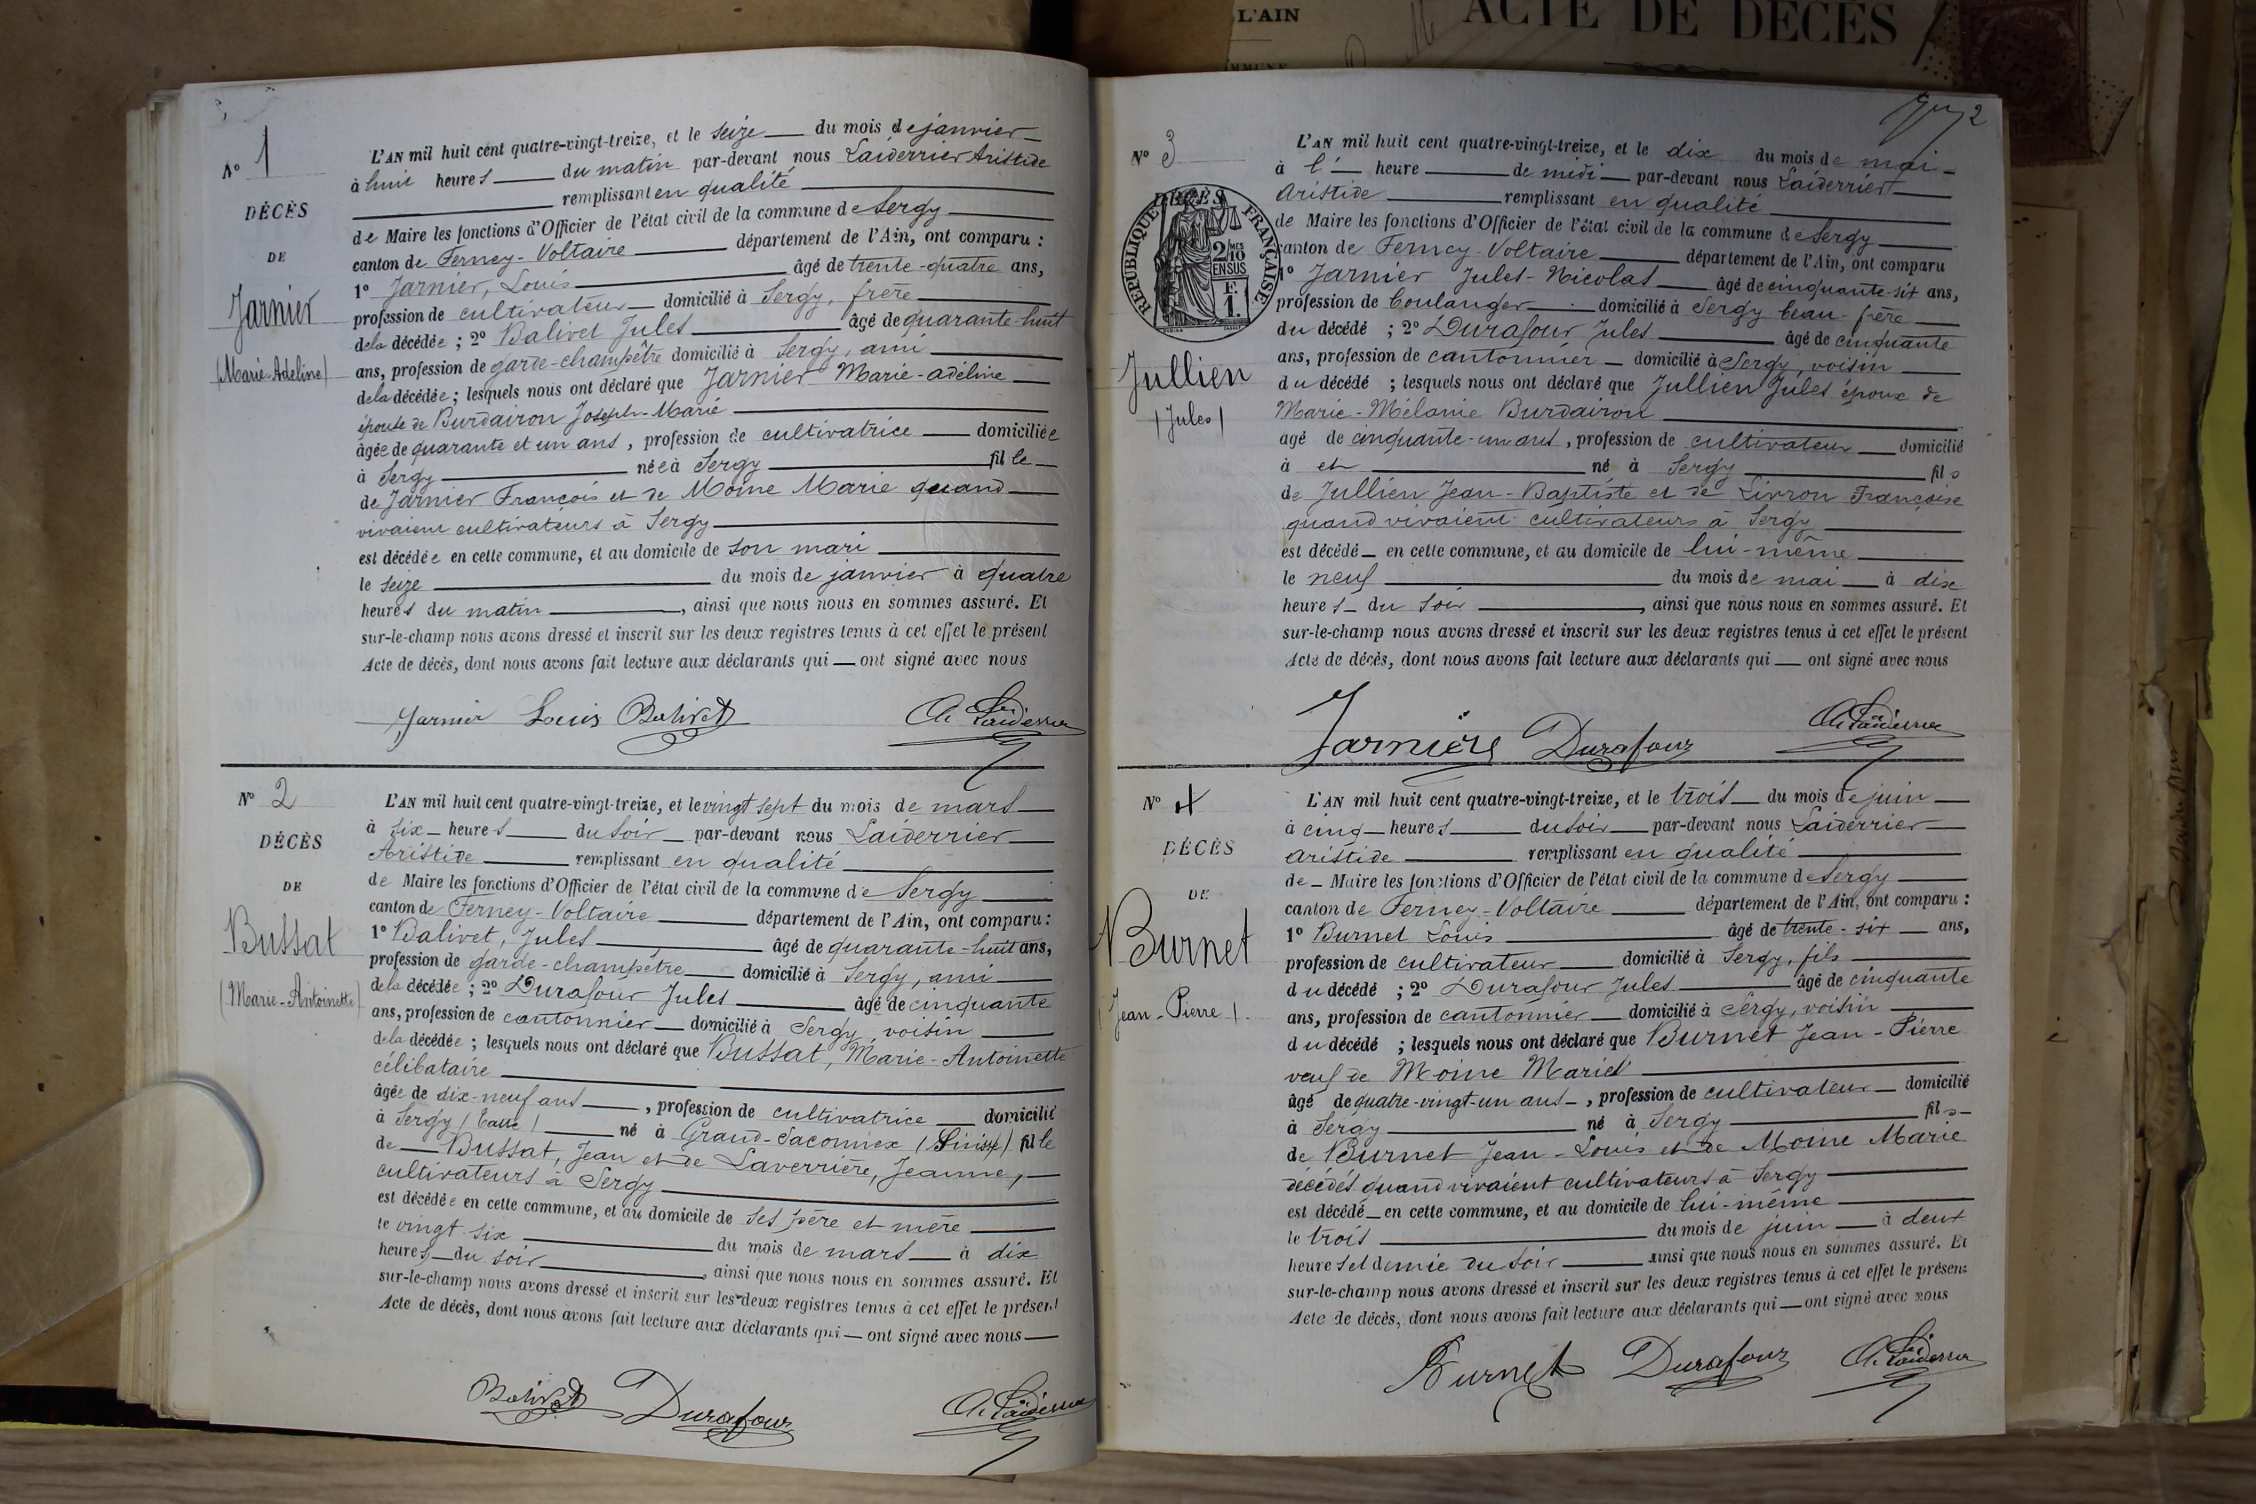 L'AIN
ACTE DE DÉCÈS
N° 1
DÉCÈS
DE
Jarnier
(Marie-Adéline)
L'AN mil huit cent quatre-vingt-treize, et le seize du mois de janvier
à huit heures du matin par-devant nous Laiderrier Aristide
remplissant en qualité
de Maire les fonctions d'Officier de l'état civil de la commune de Sergy
canton de Ferney-Voltaire département de l'Ain, ont comparu :
1° Jarnier, Louis âgé de trente-quatre ans,
profession de cultivateur domicilié à Sergy, frère
de la décédée ; 2° Balivet Jules âgé de quarante-huit
ans, profession de garde-champêtre domicilié à Sergy, ami
de la décédée ; lesquels nous ont déclaré que Jarnier Marie-Adéline
épouse de Burdairon Joseph-Marie
âgée de quarante et un ans, profession de cultivatrice domiciliée
à Sergy née à Sergy fille
de Jarnier François et de Moine Marie quand
vivaient cultivateurs à Sergy
est décédée en cette commune, et au domicile de son mari
le seize du mois de janvier à quatre
heures du matin, ainsi que nous nous en sommes assuré. Et
sur-le-champ nous avons dressé et inscrit sur les deux registres tenus à cet effet le présent
Acte de décès, dont nous avons fait lecture aux déclarants qui ont signé avec nous
Jarnier Louis Balivet A. Laiderrier
N° 2
DÉCÈS
DE
Bussat
(Marie-Antoinette)
L'AN mil huit cent quatre-vingt-treize, et le vingt sept du mois de mars
à six heures du soir par-devant nous Laiderrier
Aristide remplissant en qualité
de Maire les fonctions d'Officier de l'état civil de la commune de Sergy
canton de Ferney-Voltaire département de l'Ain, ont comparu :
1° Balivet, Jules âgé de quarante-huit ans,
profession de garde-champêtre domicilié à Sergy, ami
de la décédée ; 2° Durafour Jules âgé de cinquante
ans, profession de cantonnier domicilié à Sergy, voisin
de la décédée ; lesquels nous ont déclaré que Bussat, Marie-Antoinette
célibataire
âgée de dix-neuf ans, profession de cultivatrice domicilié
à Sergy né à Grand-Saconnex (Suisse) fille
de Bussat, Jean et de Laverrière, Jeanne,
cultivateurs à Sergy
est décédée en cette commune, et au domicile de ses père et mère
le vingt six du mois de mars à dix
heures du soir, ainsi que nous nous en sommes assuré. Et
sur-le-champ nous avons dressé et inscrit sur les deux registres tenus à cet effet le présent
Acte de décès, dont nous avons fait lecture aux déclarants qui ont signé avec nous
Balivet Durafour A. Laiderrier
2
N° 3
DÉCÈS
RÉPUBLIQUE FRANÇAISE
2/10 MES
EN SUS
F.
1.
Jullien
(Jules)
L'AN mil huit cent quatre-vingt-treize, et le dix du mois de mai
à l' heure de midi par-devant nous Laiderrier
Aristide remplissant en qualité
de Maire les fonctions d'Officier de l'état civil de la commune de Sergy
canton de Ferney-Voltaire département de l'Ain, ont comparu
1° Jarnier Jules-Nicolas âgé de cinquante-six ans,
profession de boulanger domicilié à Sergy beau-frère
du décédé ; 2° Durafour Jules âgé de cinquante
ans, profession de cantonnier domicilié à Sergy, voisin
du décédé ; lesquels nous ont déclaré que Jullien Jules époux de
Marie-Mélanie Burdairon
agé de cinquante-un ans, profession de cultivateur domicilié
à et né à Sergy fils
de Jullien Jean-Baptiste et de Livron Françoise
quand vivaient cultivateurs à Sergy
est décédé en cette commune, et au domicile de lui-même
le neuf du mois de mai à dix
heures du soir, ainsi que nous nous en sommes assuré. Et
sur-le-champ nous avons dressé et inscrit sur les deux registres tenus à cet effet le présent
Acte de décès, dont nous avons fait lecture aux déclarants qui ont signé avec nous
Jarnier Durafour A. Laiderrier
N° 4
DÉCÈS
DE
Burnet
(Jean-Pierre)
L'AN mil huit cent quatre-vingt-treize, et le trois du mois de juin
à cinq heures du soir par-devant nous Laiderrier
Aristide remplissant en qualité
de Maire les fonctions d'Officier de l'état civil de la commune de Sergy
canton de Ferney-Voltaire département de l'Ain, ont comparu :
1° Burnet Louis âgé de trente-six ans,
profession de cultivateur domicilié à Sergy, fils
du décédé ; 2° Durafour Jules âgé de cinquante
ans, profession de cantonnier domicilié à Sergy, voisin
du décédé ; lesquels nous ont déclaré que Burnet Jean-Pierre
veuf de Moine Marie
âgé de quatre-vingt-un ans, profession de cultivateur domicilié
à Sergy né à Sergy fils
de Burnet Jean-Louis et de Moine Marie
décédés quand vivaient cultivateurs à Sergy
est décédé en cette commune, et au domicile de lui-même
le trois du mois de juin à deux
heures et demie du soir ainsi que nous nous en sommes assuré. Et
sur-le-champ nous avons dressé et inscrit sur les deux registres tenus à cet effet le présent
Acte de décès, dont nous avons fait lecture aux déclarants qui ont signé avec nous
Burnet Durafour A. Laiderrier